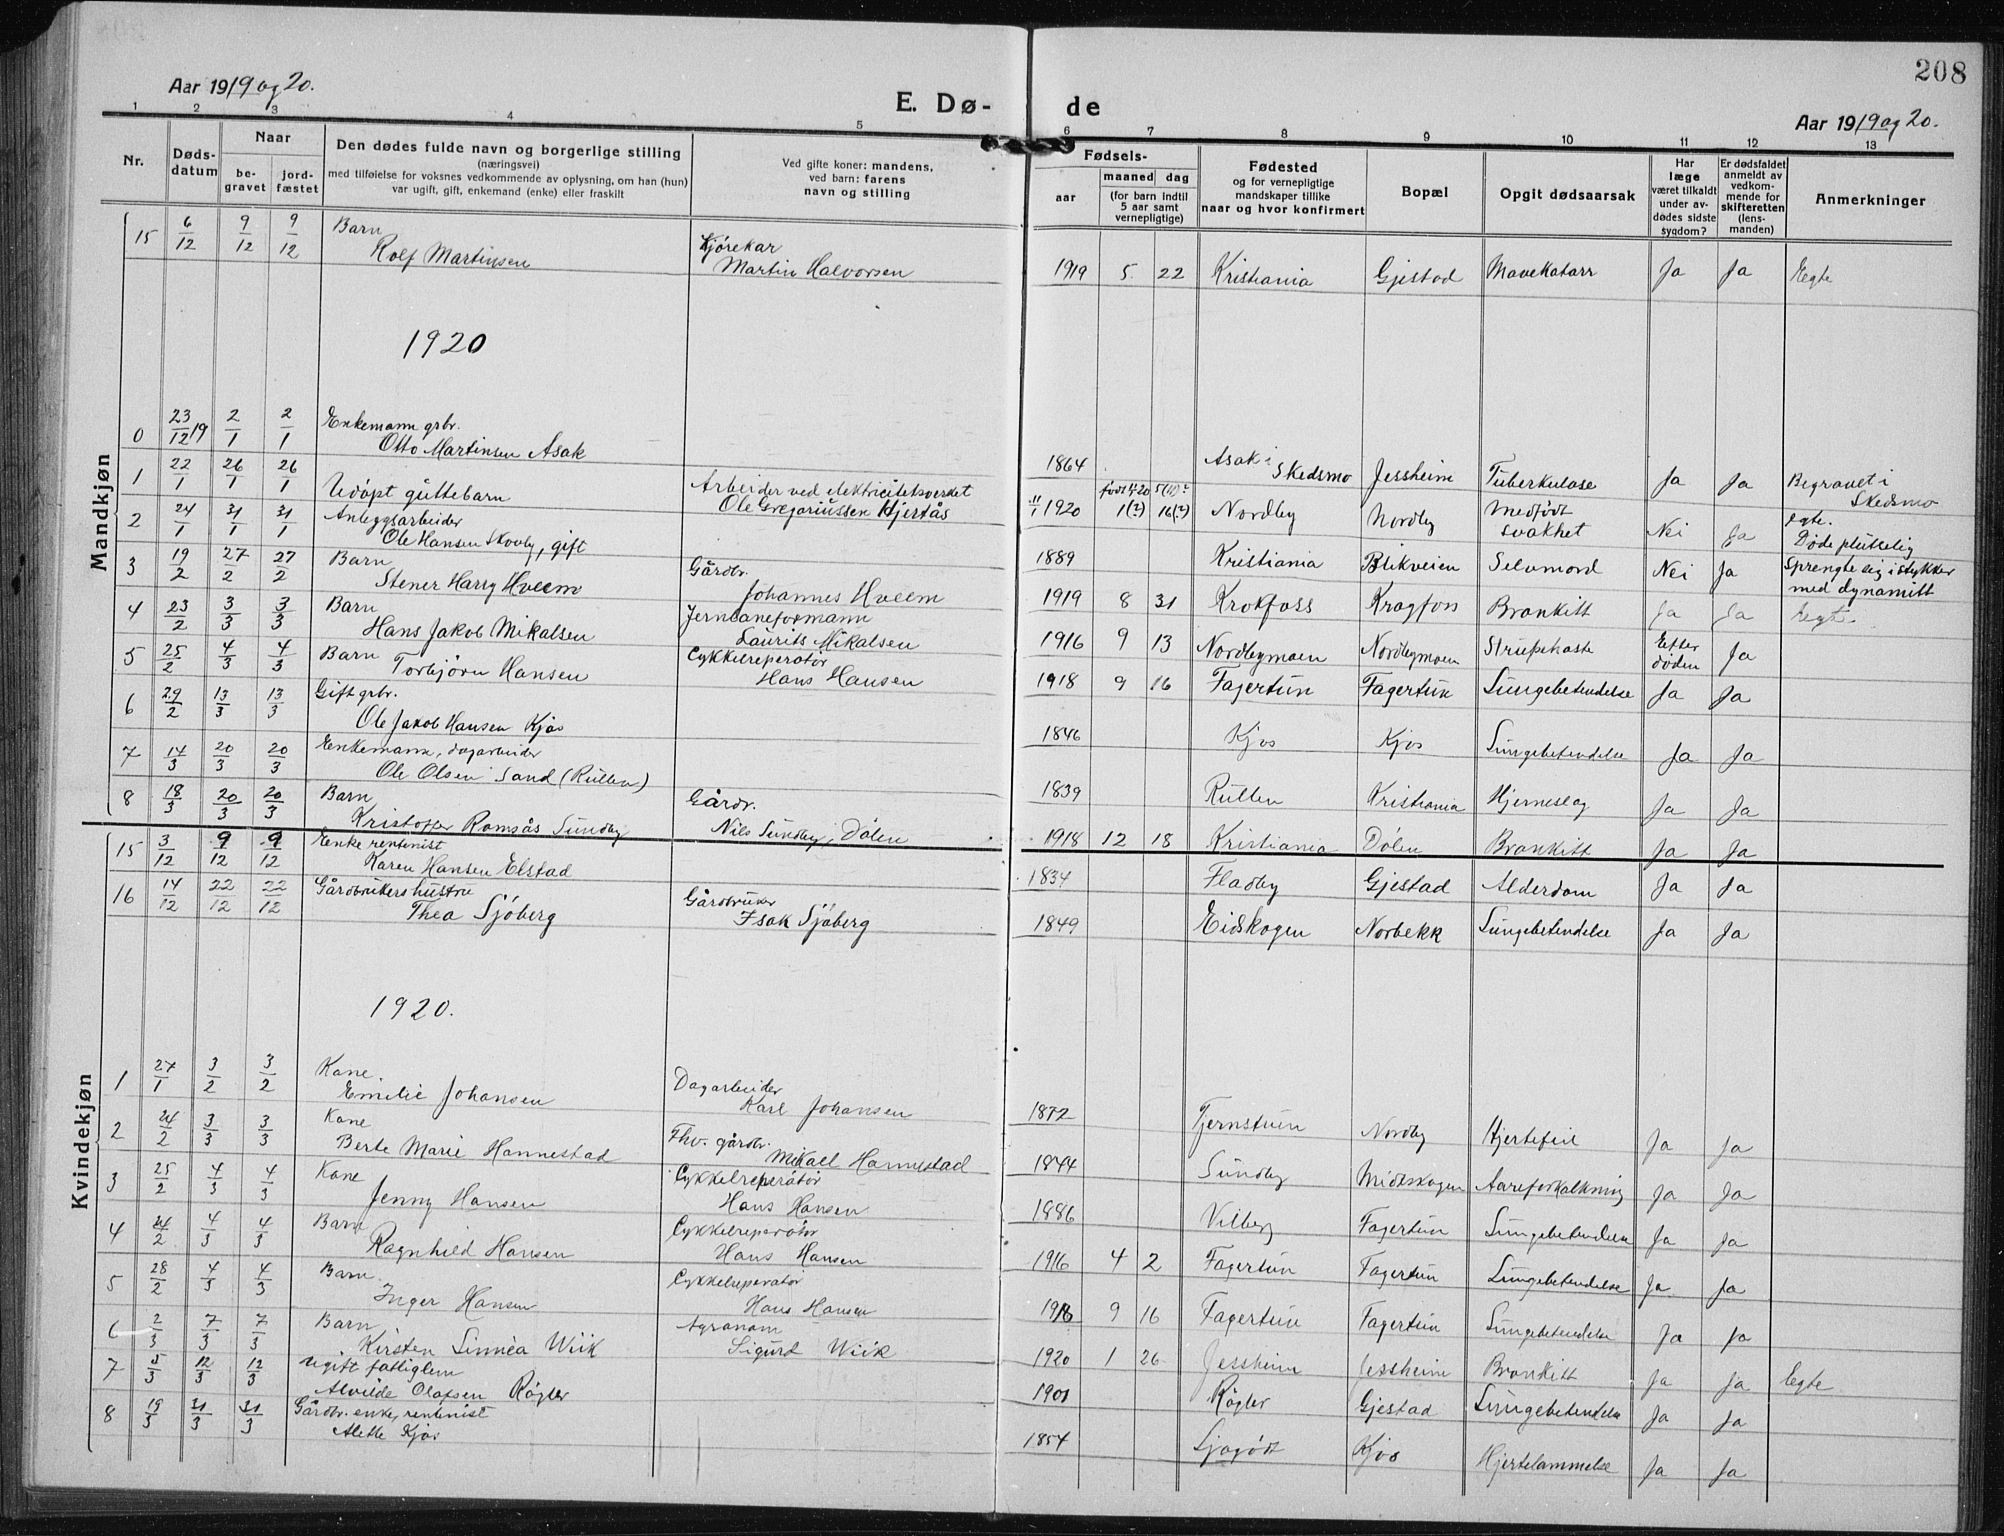 208
Aar 1919 og 20.
E. Dø-
de
Aar 1919 og 20.
1 2 3 4 5 6 7 8 9 10 11 12 13
Nr.
Døds-
datum
Naar
be-
gravet
jord-
fæstet
Den dødes fulde navn og borgerlige stilling
(næringsvei)
med tilføielse for voksnes vedkommende av oplysning, om han (hun)
var ugift, gift, enkemand (enke) eller fraskilt
Ved gifte koner: mandens,
ved barn: farens
navn og stilling
Fødsels-
aar
maaned dag
(for barn indtil
5 aar samt
vernepligtige)
Fødested
og for vernepligtige
mandskaper tillike
naar og hvor konfirmert
Bopæl
Opgit dødsaarsak
Har
læge
været tilkaldt
under av-
dødes sidste
sygdom?
Er dødsfaldet
anmeldt av
vedkom-
mende for
skifteretten
(lens-
manden)
Anmerkninger
Mandkjøn
15 6/12 9/12 9/12 Barn Rolf Martinsen Kjørekar Martin Halvorsen 1919 5 22 Kristiania Gjestad Mavekatarr Ja Ja Egte
1920
0 23/12 19 2/1 2/1 Enkemann grbr. Otto Martinsen Asak 1864 Asak i Skedsmo Jessheim Tuberkulose Ja Ja Begravet i Skedsmo
1 22/1 26/1 26/1 Udöpt guttebarn Arbeider ved elektricitetsverket Ole Gregoriussen Hjertås 1920 1(?) 16(?) Nordby Nordby Medfödt svakhet Nei Ja egte. Döde plutselig
2 24/1 31/1 31/1 Anleggsarbeider Ole Hansen Skovly, gift 1889 Kristiania Blikveien Selvmord Nei Ja Sprengte sig i stykker med dynamitt
3 19/2 27/2 27/2 Barn Stener Harry Hveem Gårdbr. Johannes Hveem 1919 8 31 Krokfoss Kragfoss Bronkitt Ja Ja Egte.
4 23/2 3/3 3/3 Barn Hans Jakob Mikalsen Jernbaneformann Laurits Mikalsen 1916 9 13 Nordbymoen Nordbymoen Strupehoste Etter döden Ja
5 25/2 4/3 4/3 Barn Torbjörn Hansen Cykkelreperatör Hans Hansen 1918 9 16 Fagertun Fagertun Lungebetendelse Ja Ja
6 29/2 13/3 13/3 Gift grbr. Ole Jakob Hansen Kjos 1846 Kjos Kjos Lungebetendelse Ja Ja
7 14/3 20/3 20/3 Enkemann, dagarbeider Ole Olsen Sand (Rullen) 1839 Rullen Kristiania Hjerneslag Ja Ja
8 18/3 20/3 20/3 Barn Kristoffer Ramsås Sundby Gårdbr. Nils Sundby, Dölen 1918 12 18 Kristiania Dölen Bronkitt Ja Ja
Kvindekjøn
15 3/12 9/12 9/12 Enke rentenist Karen Hansen Elstad 1834 Fladby Gjestad Alderdom Ja Ja
16 14/12 22/12 22/12 Gårdbrukers hustru Thea Sjöberg Gårdbruker Isak Sjöberg 1849 Eidskogen Norbekk Lungebetendelse Ja Ja
1920.
1 27/1 3/2 3/2 Kone Emilie Johansen Dagarbeider Karl Johansen 1872 Tjernstuen Nordby Hjertefeil Ja Ja
2 24/2 3/3 3/3 Kone Berte Marie Hannestad Fhv. gårdbr. Mikael Hannestad 1844 Sundby Midtskogen Aareforkalkning Ja Ja
3 25/2 4/3 4/3 Kone Jenny Hansen Cykkelreperatör Hans Hansen 1886 Vilberg Fagertun Lungebetendelse Ja Ja
4 24/2 4/3 4/3 Barn Ragnhild Hansen Cykkelreperatör Hans Hansen 1916 4 2 Fagertun Fagertun Lungebetendelse Ja Ja
5 28/2 4/3 4/3 Barn Inger Hansen Cykkelreperatör Hans Hansen 1918 9 16 Fagertun Fagertun Lungebetendelse Ja Ja
6 2/3 7/3 7/3 Barn Kirsten Linnéa Wiik Agronom Sigurd Wiik 1920 1 26 Jessheim Jessheim Bronkitt Ja Ja Egte
7 5/3 12/3 12/3 Ugift fattiglem Alvilde Olafsen Rögler 1901 Rögler Gjestad Lungebetendelse Ja Ja
8 19/3 31/3 31/3 Gårdbr. enke, rentenist Alette Kjos 1854 Kjos Hjertelammelse Ja Ja